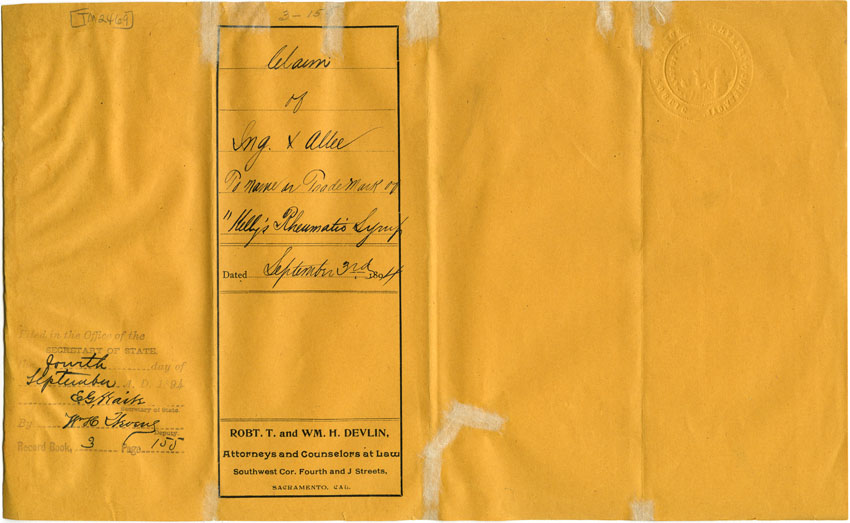 TM2469
3-15
Claim
of
Ing. & Allee
To Name or Trade Mark of
"Kelly's Rheumatic Syrup
Dated September 3rd 1894
ROBT. T. and WM. H. DEVLIN,
Attorneys and Counselors at Law
Southwest Cor. Fourth and J Streets,
SACRAMENTO, CAL.
Filed in the Office of the
SECRETARY OF STATE
fourth day of
September A. D. 189
E. G. Waite
Secretary of State
By
Deputy.
Record Book, 3 Page 155